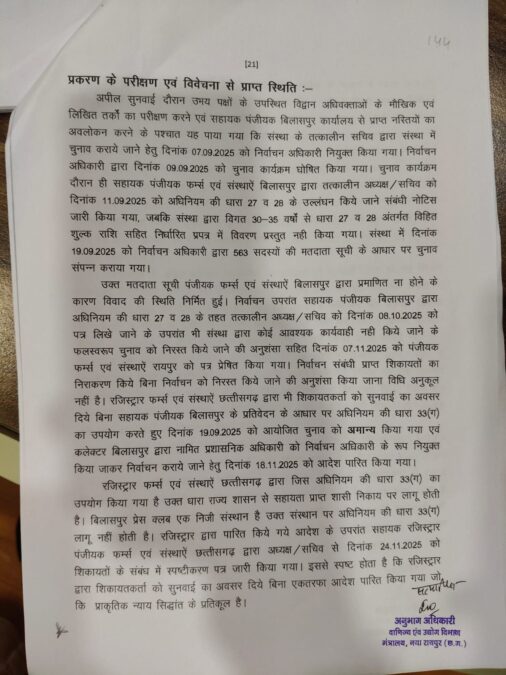 144
[21]
प्रकरण के परीक्षण एवं विवेचना से प्राप्त स्थिति :–
अपील सुनवाई दौरान उभय पक्षों के उपस्थित विद्वान अधिवक्ताओं के मौखिक एवं
लिखित तर्को का परीक्षण करने एवं सहायक पंजीयक बिलासपुर कार्यालय से प्राप्त नस्तियों का
अवलोकन करने के पश्चात यह पाया गया कि संस्था के तत्कालीन सचिव द्वारा संस्था में
चुनाव कराये जाने हेतु दिनांक 07.09.2025 को निर्वाचन अधिकारी नियुक्त किया गया। निर्वाचन
अधिकारी द्वारा दिनांक 09.09.2025 को चुनाव कार्यक्रम घोषित किया गया। चुनाव कार्यक्रम
दौरान ही सहायक पंजीयक फर्म्स एवं संस्थाऐं बिलासपुर द्वारा तत्कालीन अध्यक्ष/सचिव को
दिनांक 11.09.2025 को अधिनियम की धारा 27 व 28 के उल्लंघन किये जाने संबंधी नोटिस
जारी किया गया, जबकि संस्था द्वारा विगत 30–35 वर्षो से धारा 27 व 28 अंतर्गत विहित
शुल्क राशि सहित निर्धारित प्रपत्र में विवरण प्रस्तुत नही किया गया। संस्था में दिनांक
19.09.2025 को निर्वाचन अधिकारी द्वारा 563 सदस्यों की मतदाता सूची के आधार पर चुनाव
संपन्न कराया गया।
उक्त मतदाता सूची पंजीयक फर्म्स एवं संस्थाऐं बिलासपुर द्वारा प्रमाणित ना होने के
कारण विवाद की स्थिति निर्मित हुई। निर्वाचन उपरांत सहायक पंजीयक बिलासपुर द्वारा
अधिनियम की धारा 27 व 28 के तहत तत्कालीन अध्यक्ष/सचिव को दिनांक 08.10.2025 को
पत्र लिखे जाने के उपरांत भी संस्था द्वारा कोई आवश्यक कार्यवाही नही किये जाने के
फलस्वरूप चुनाव को निरस्त किये जाने की अनुशंसा सहित दिनांक 07.11.2025 को पंजीयक
फर्म्स एवं संस्थाऐं रायपुर को पत्र प्रेषित किया गया। निर्वाचन संबंधी प्राप्त शिकायतों का
निराकरण किये बिना निर्वाचन को निरस्त किये जाने की अनुशंसा किया जाना विधि अनुकूल
नही है। रजिस्ट्रार फर्म्स एवं संस्थाऐं छत्तीसगढ़ द्वारा भी शिकायतकर्ता को सुनवाई का अवसर
दिये बिना सहायक पंजीयक बिलासपुर के प्रतिवेदन के आधार पर अधिनियम की धारा 33(ग)
का उपयोग करते हुए दिनांक 19.09.2025 को आयोजित चुनाव को अमान्य किया गया एवं
कलेक्टर बिलासपुर द्वारा नामित प्रशासनिक अधिकारी को निर्वाचन अधिकारी के रूप नियुक्त
किया जाकर निर्वाचन कराये जाने हेतु दिनांक 18.11.2025 को आदेश पारित किया गया।
रजिस्ट्रार फर्म्स एवं संस्थाऐं छत्तीसगढ़ द्वारा जिस अधिनियम की धारा 33(ग) का
उपयोग किया गया है उक्त धारा राज्य शासन से सहायता प्राप्त शासी निकाय पर लागू होती
है। बिलासपुर प्रेस क्लब एक निजी संस्थान है उक्त संस्थान पर अधिनियम की धारा 33(ग)
लागू नही होती है। रजिस्ट्रार द्वारा पारित किये गये आदेश के उपरांत सहायक रजिस्ट्रार
पंजीयक फर्म्स एवं संस्थाऐं छत्तीसगढ़ द्वारा अध्यक्ष/सचिव से दिनांक 24.11.2025 को
शिकायतों के संबंध में स्पष्टीकरण पत्र जारी किया गया। इससे स्पष्ट होता है कि रजिस्ट्रार
द्वारा शिकायतकर्ता को सुनवाई का अवसर दिये बिना एकतरफा आदेश पारित किया गया जो
कि प्राकृतिक न्याय सिद्धांत के प्रतिकूल है।
अनुभाग अधिकारी
वाणिज्य एंव उद्योग विभाग
मंत्रालय, नवा रायपुर (छ.ग.)